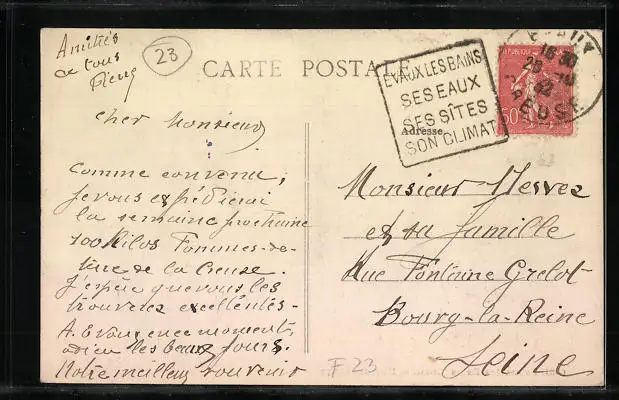 Amitiés
de tous
23
CARTE POSTALE
EVAUX LES BAINS
SES EAUX
SES SITES
SON CLIMAT
EVAUX
16 30
28
CREUSE
50
Adresse
Cher Monsieur,
Comme convenu,
je vous expédierai
la semaine prochaine
100 Kilos Pommes-de-
terre de la Creuse.
J'espère que vous les
trouverez excellentes -
A Evaux, en ce moment,
adieu les beaux jours.
Notre meilleur souvenir
Monsieur
et sa famille
Rue Fontaine Grelot
Bourg-la-Reine
Seine
F 23